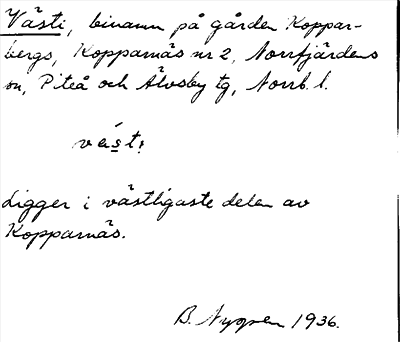 Västi, binamn på gården Koppar-
bergs, Kopparnäs nr 2, Norrfjärdens
sn, Piteå och Älvsby tg, Norrb. l.
Ligger i västligaste delen av
Kopparnäs.
B. Nygren 1936.